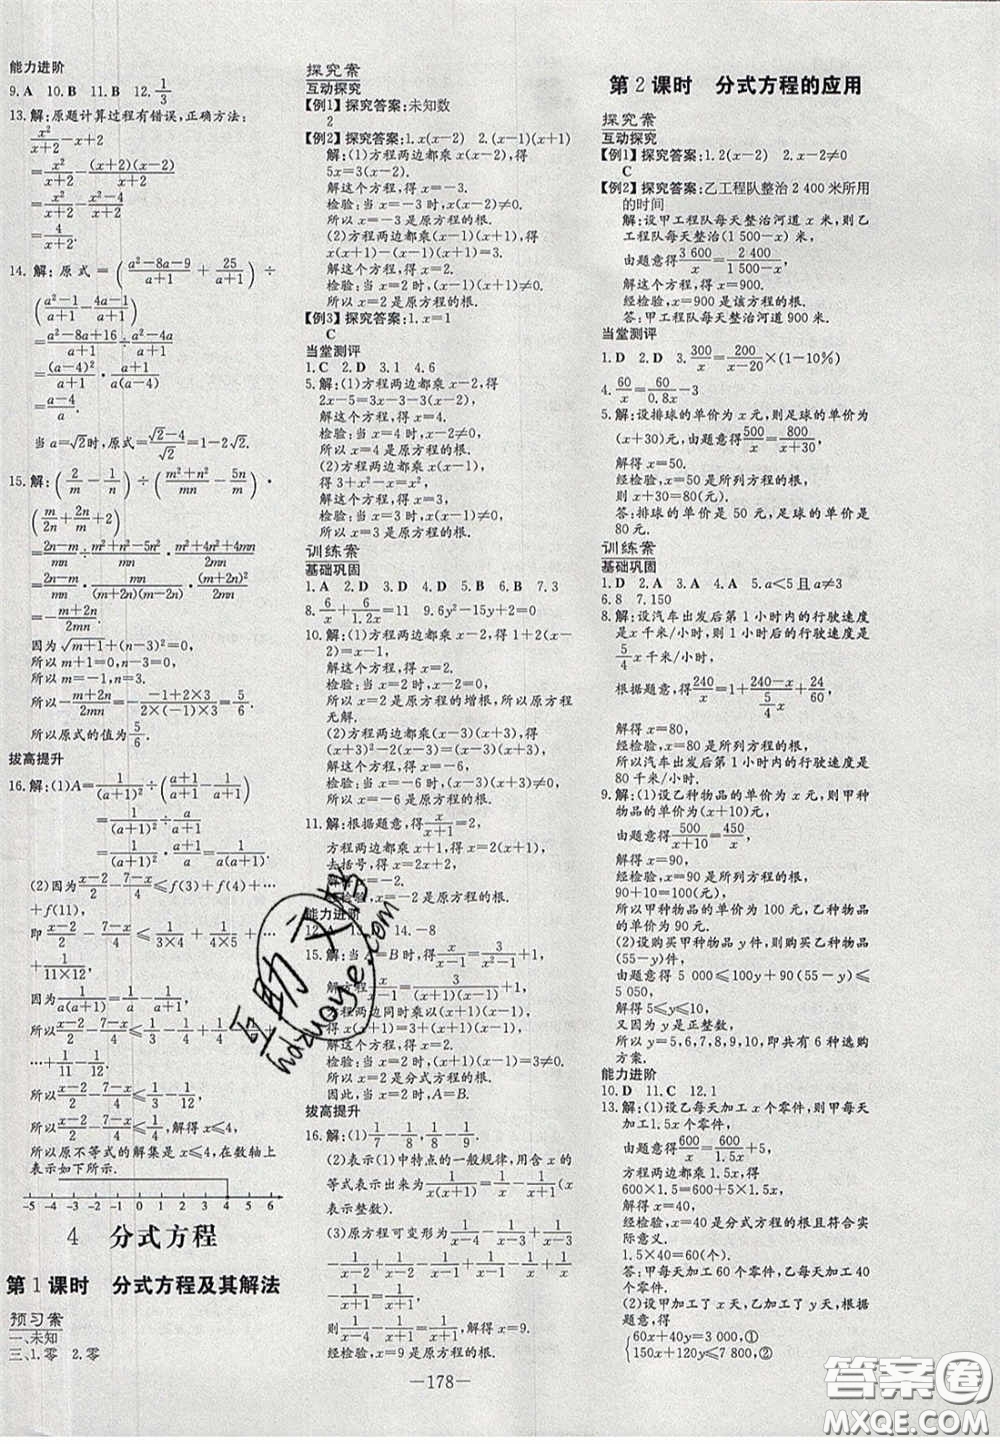 能力进阶
9. A 10. B 11. B 12. 1/3
13. 解:原题计算过程有错误,正确方法:
x²/(x+2)-x+2
=x²/(x+2)-(x+2)(x-2)/(x+2)
=x²/(x+2)-(x²-4)/(x+2)
=4/(x+2).
14. 解:原式=((a²-8a-9)/(a+1)+25/(a+1))÷
((a²-1)/(a+1)-(4a-1)/(a+1))
=(a²-8a+16)/(a+1)÷(a²-4a)/(a+1)
=(a-4)²/(a+1)·(a+1)/(a(a-4))
=(a-4)/a.
当a=√2时,原式=(√2-4)/√2=1-2√2.
15. 解:(2/m-1/n)÷((m²+n²)/mn-5n/m)·
(m/2n+2n/m+2)
=(2n-m)/mn÷(m²+n²-5n²)/mn·(m²+4n²+4mn)/2mn
=(2n-m)/mn·mn/((m+2n)(m-2n))·(m+2n)²/2mn
=-(m+2n)/2mn.
因为√(m+1)+(n-3)²=0,
所以m+1=0,n-3=0.
所以m=-1,n=3.
所以-(m+2n)/2mn=-(-1+2×3)/(2×(-1)×3)=5/6.
所以原式的值为5/6.
拔高提升
16. 解:(1)A=1/(a+1)²÷(a/(a+1)+1/(a+1))
=1/(a+1)²÷(a+1)/a(a+1)
=1/(a+1)²·a(a+1)/(a+1)=
(2)因为(x-2)/2-(7-x)/4≤f(3)+f(4)+…
+f(11),
即(x-2)/2-(7-x)/4≤1/(3×4)+1/(4×5)+…+
1/(11×12),
因为1/(a(a+1))=1/a-1/(a+1),
所以(x-2)/2-(7-x)/4≤1/3-1/4+1/4-1/5+
…+1/11-1/12,
所以(x-2)/2-(7-x)/4≤1/3-1/12,
所以(x-2)/2-(7-x)/4≤1/4,解得x≤4,
所以原不等式的解集是x≤4,在数轴上
表示如下所示.
-5 -4 -3 -2 -1 0 1 2 3 4 5 6
4 分式方程
第1课时 分式方程及其解法
预习案
一、未知
三、1. 零 2. 零
探究案
互动探究
【例1】探究答案:未知数
2
【例2】探究答案:1. x(x-2) 2. (x-1)(x+1)
解:(1)方程两边都乘x(x-2),得
5x=3(x-2).
解这个方程,得x=-3.
检验:当x=-3时,x(x-2)≠0,
所以x=-3是原方程的根.
(2)方程两边都乘(x-1)(x+1),得
(x+1)²-(x-1)(x+1)=6.
解这个方程,得x=2.
检验:当x=2时,(x-1)(x+1)≠0.
所以x=2是原方程的根.
【例3】探究答案:1. x=1
C
当堂测评
1. C 2. D 3. 1 4. 6
5. 解:(1)方程两边都乘x-2,得
2x-5=3x-3-3(x-2),
解这个方程,得x=4.
检验:当x=4时,x-2≠0,
所以x=4是原方程的根.
(2)方程两边都乘x(x-1),
得3+x²-x=x².
解这个方程,得x=3.
检验:当x=3时,x(x-1)≠0,
所以x=3是原方程的根.
训练案
基础巩固
1. A 2. D 3. D 4. C 5. B 6. D 7. 3
8. 6/x+6/1.2x=11 9. 6y²-15y+2=0
10. 解:(1)方程两边都乘x-2,得1+2(x-
2)=x-1,
解这个方程,得x=2.
检验:当x=2时,x-2=0,
所以x=2是原方程的增根,所以原方程
无解.
(2)方程两边都乘(x-3)(x+3),得
(x+3)²-2(x-3)=(x-3)(x+3).
解这个方程,得x=-6.
检验:当x=-6时,(x-3)(x+3)≠0,
所以x=-6是原方程的根.
11. 解:根据题意,得x/(x+1)=2,
方程两边都乘x+1,得x=2(x+1),
去括号,得x=2x+2,
解得x=-2.
检验,x=-2是原方程的根.
能力进阶
14. -8
15. 解:当A=B时,得x/(x-1)=3/(x²-1)+1.
解方程x/(x-1)=3/((x+1)(x-1))+1.
方程两边同时乘(x+1)(x-1),
得x(x+1)=3+(x+1)(x-1),
x²+x=3+x²-1,x=2.
检验:当x=2时,(x+1)(x-1)=3≠0.
所以x=2是分式方程的根.
因此,当x=2时,A=B.
拔高提升
16. 解:(1)1/7-1/8,1/8-1/9.
(2)表示(1)中特点的一般规律,用含x的
等式表示出来为1/(x(x+1))=1/x-1/(x+1)(x
表示整数).
(3)原方程可变形为1/(x-4)-1/(x-3)+1/(x-3)
-1/(x-2)+1/(x-2)-1/(x-1)+1/(x-1)-1/x+1/x-
1/(x+1)=1/(x+1),
则1/(x-4)-1/(x+1)=1/(x+1),解得x=9.
经检验,x=9是原方程的根.
第2课时 分式方程的应用
探究案
互动探究
【例1】探究答案:1. 2(x-2) 2. x-2≠0
C
【例2】探究答案:乙工程队整治2 400米所用
的时间
解:设甲工程队每天整治河道x米,则乙
工程队每天整治(1 500-x)米.
由题意得3 600/x=2 400/(1 500-x).
解这个方程,得x=900.
经检验,x=900是该方程的根.
答:甲工程队每天整治河道900米.
当堂测评
1. D 2. D 3. 300/x=200/(x-20)×(1-10%)
4. 60/x=60/0.8x-3
5. 解:设排球的单价为x元,则足球的单价为
(x+30)元,由题意得500/x=800/(x+30),
解得x=50.
经检验,x=50是原方程的根.
则x+30=80(元).
答:排球的单价是50元,足球的单价是
80元.
训练案
基础巩固
1. D 2. A 3. A 4. A 5. a<5且a≠3
6. 8 7. 150
8. 解:设汽车出发后第1小时内的行驶速度
是x千米/小时,则1小时后的行驶速度是
5/4x千米/小时,
根据题意,得240/x=1+(240-x)/(5/4x)+24/60,
解得x=80,
经检验,x=80是所列方程的根,
所以汽车出发后第1小时内的行驶速度
是80千米/小时.
9. 解:(1)设乙种物品的单价为x元,则甲种
物品的单价为(x+10)元,
由题意得500/(x+10)=450/x,
解得x=90,
经检验,x=90是所列方程的根,
90+10=100(元),
所以甲种物品的单价为100元,乙种物品
的单价为90元.
(2)设购买甲种物品y件,则乙种物品
(55-y)件,
由题意得5 000≤100y+90(55-y)≤
5 050,
解得5≤y≤10.
又因为y是正整数,
所以y=5,6,7,8,9,10,即共有6种选购
方案.
能力进阶
10. D 11. C 12. 1
13. 解:(1)设乙每天加工x个零件,则甲每天
加工1.5x个零件,
由题意得600/x=600/1.5x+5,
方程两边都乘1.5x,得
600×1.5=600+5×1.5x,
解得x=40,
经检验,x=40是分式方程的根且符合
实际意义.
1.5×40=60(个).
答:甲每天加工60个零件,乙每天加工
40个零件.
(2)设甲加工了x天,乙加工了y天,根据
题意,得
60x+40y=3 000,①
150x+120y≤7 800,②
—178—
互助文档
hdzuoye.com
答案圈
MXQE.COM